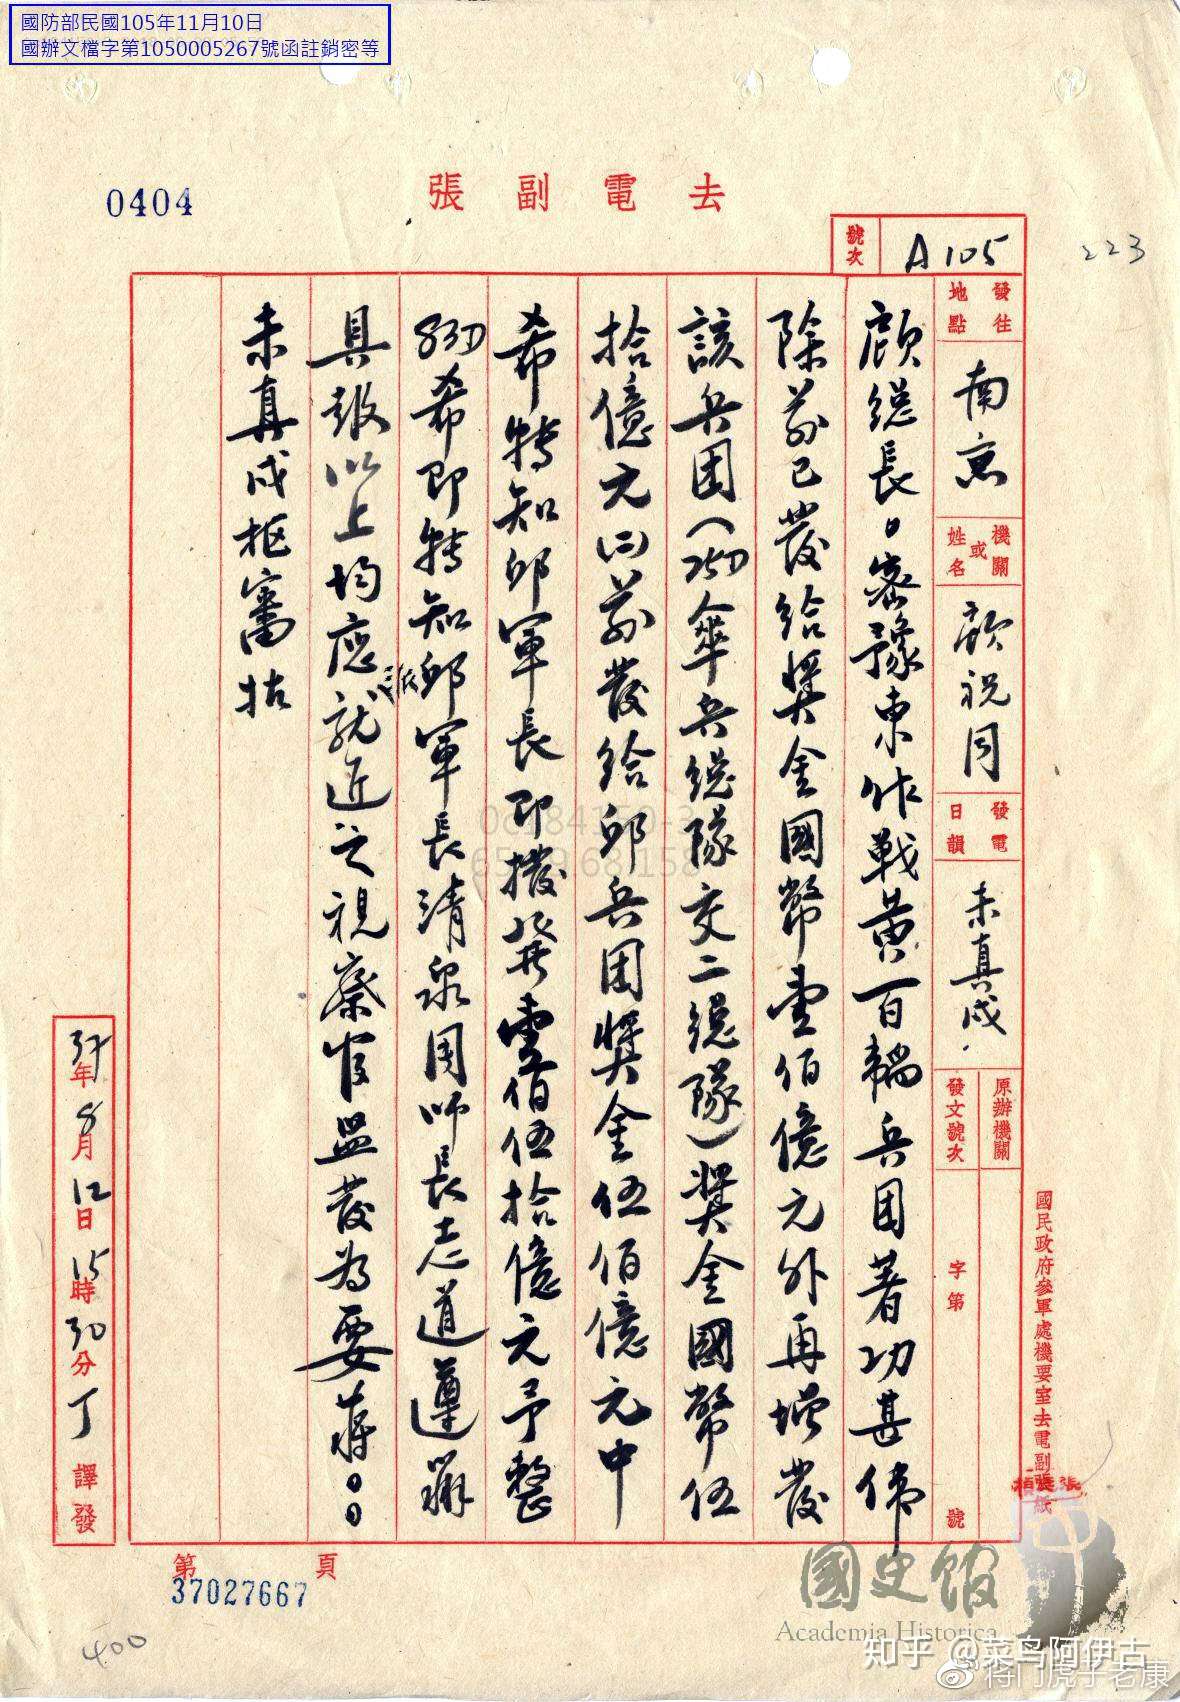 國防部民國105年11月10日
國辦文檔字第1050005267號函註銷密等
0404
去電副張
號次
A105
223
發往地點
南京
機關或姓名
顧祝同
發電日韻
未真戌
原辦機關
發文號次
字第
號
顧總長。密豫東作戰黃百韜兵團著功甚偉
除前已發給獎金國幣壹佰億元外再增發
該兵團(傘兵總隊交二總隊)獎金國幣伍
拾億元前發給邱兵團獎金伍佰億元中
希轉知邱軍長即撥壹佰伍拾億元予整
希即轉知邱軍長清泉周師長志道遵辦
具報以上均應就近之視察官監發為要蔣。。
未真戌枢
國民政府參軍處機要室去電副張紙
37年8月12日15時30分丁譯發
第
頁
37027667
400
國史館
Academia Historica
知乎 @菜鸟阿伊古
@将门虎子老康